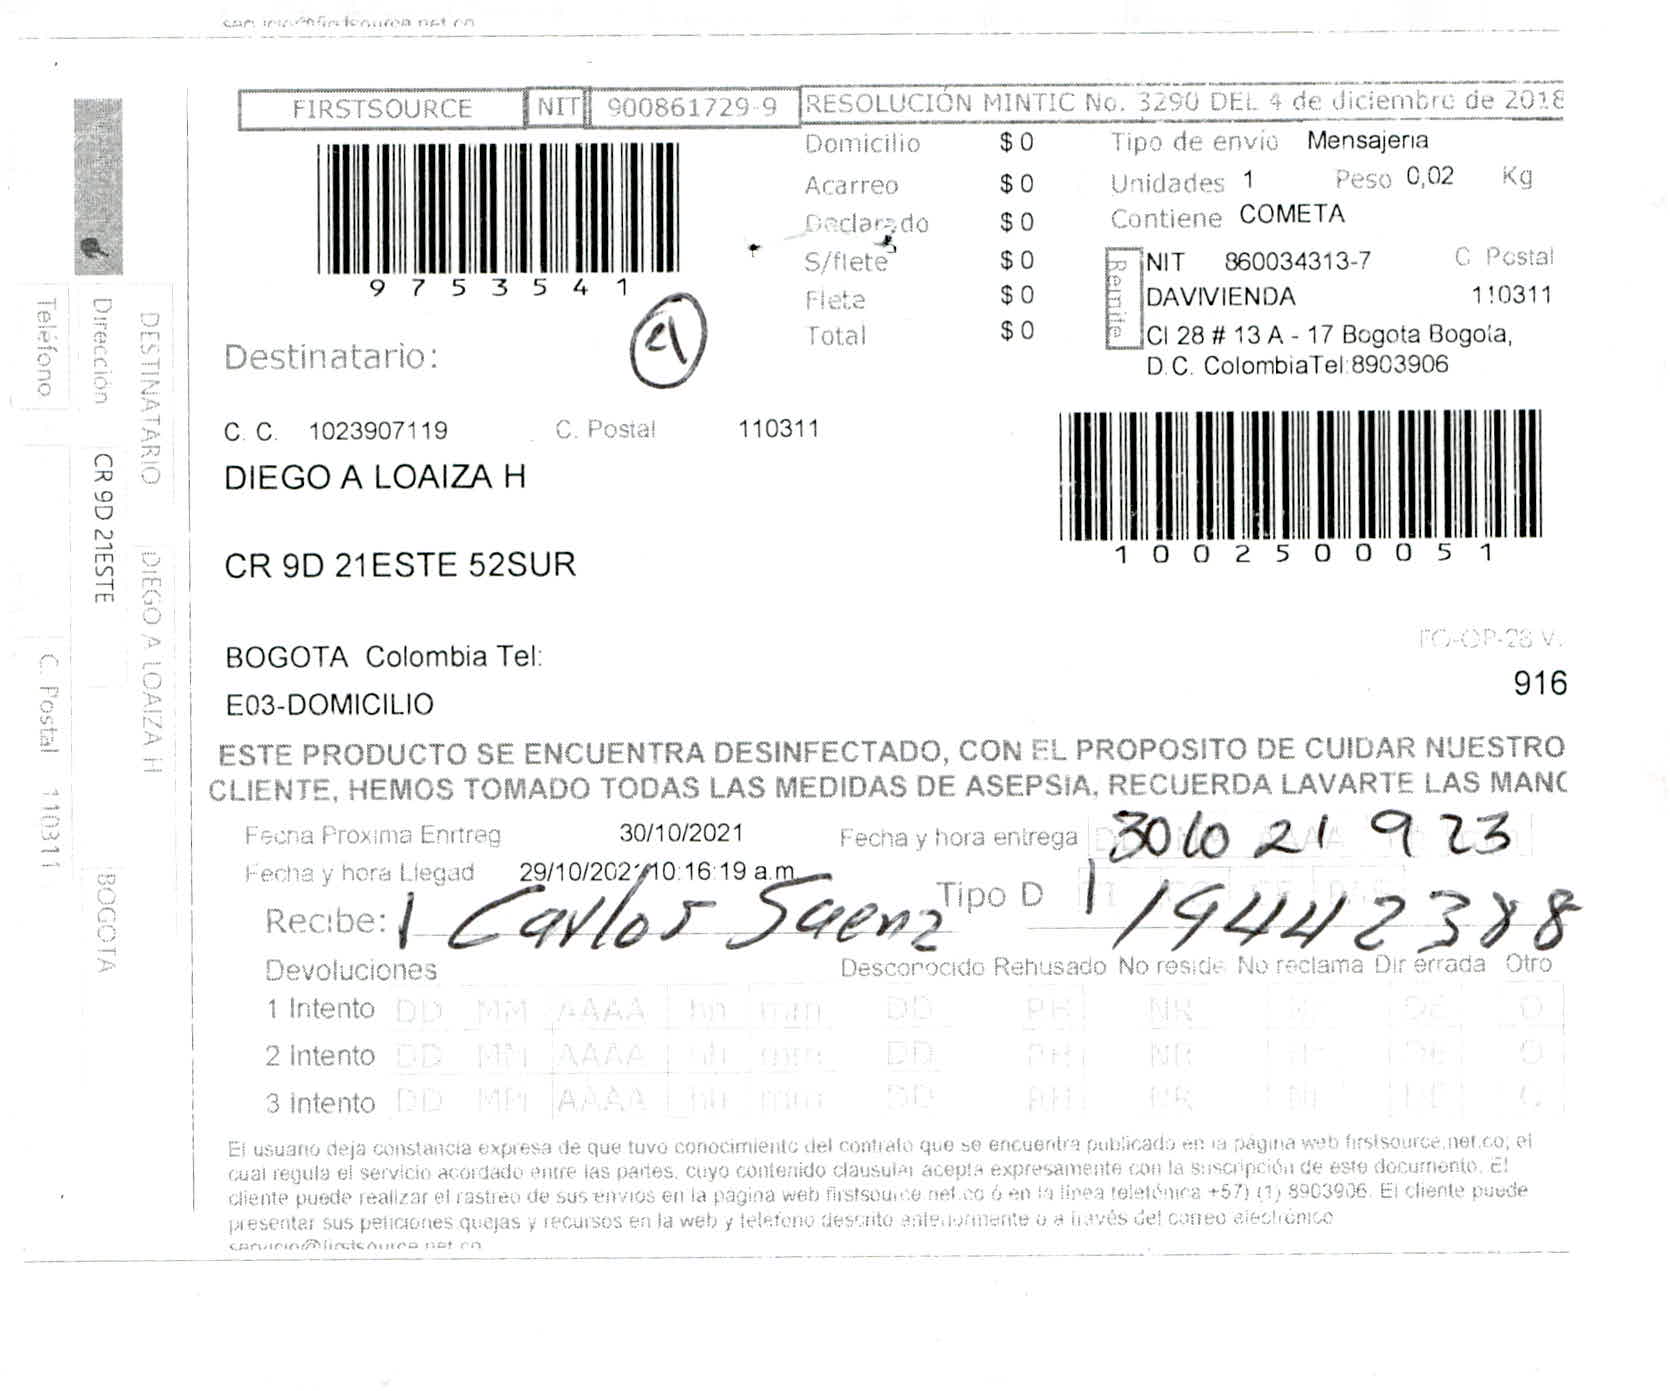 servicio@firstsource.net.co
FIRSTSOURCE NIT 900861729-9 RESOLUCIÓN MINTIC No. 3290 DEL 4 de diciembre de 2018
9753541
Domicilio $ 0
Acarreo $ 0
Declarado $ 0
S/flete $ 0
Flete $ 0
Total $ 0
Tipo de envío Mensajeria
Unidades 1 Peso 0,02 Kg
Contiene COMETA
Remite
NIT 860034313-7 C Postal
DAVIVIENDA 110311
Cl 28 # 13 A - 17 Bogota Bogota,
D.C. ColombiaTel:8903906
1002500051
Destinatario:
C. C. 1023907119 C. Postal 110311
DIEGO A LOAIZA H
CR 9D 21ESTE 52SUR
BOGOTA Colombia Tel:
E03-DOMICILIO
FO-OP-28 V.
916
ESTE PRODUCTO SE ENCUENTRA DESINFECTADO, CON EL PROPOSITO DE CUIDAR NUESTRO
CLIENTE, HEMOS TOMADO TODAS LAS MEDIDAS DE ASEPSIA, RECUERDA LAVARTE LAS MANO
Fecha Proxima Enrtreg 30/10/2021 Fecha y hora entrega 30 10 21 9 23
Fecha y hora Llegad 29/10/2021 10:16:19 a.m.
Recibe: Carlos Saenz Tipo D 19442388
Devoluciones Desconocido Rehusado No reside No reclama Dir errada Otro
1 Intento DD MM AAAA hh mm DD RH NR DE O
2 Intento DD MM AAAA hh mm DD RH NR DE O
3 Intento DD MM AAAA hh mm DD RH NR DE
El usuario deja constancia expresa de que tuvo conocimiento del contrato que se encuentra publicado en la página web firstsource.net.co; el
cual regula el servicio acordado entre las partes, cuyo contenido clausular acepta expresamente con la suscripción de este documento. El
cliente puede realizar el rastreo de sus envios en la pagina web firstsource.net.co ó en la línea telefónica +57) (1) 8903906. El cliente puede
presentar sus peticiones quejas y recursos en la web y teléfono descrito anteriormente o a través del correo electrónico
servicio@firstsource.net.co
DESTINATARIO DIEGO A LOAIZA H
Dirección CR 9D 21ESTE BOGOTA
Teléfono C. Postal 110311